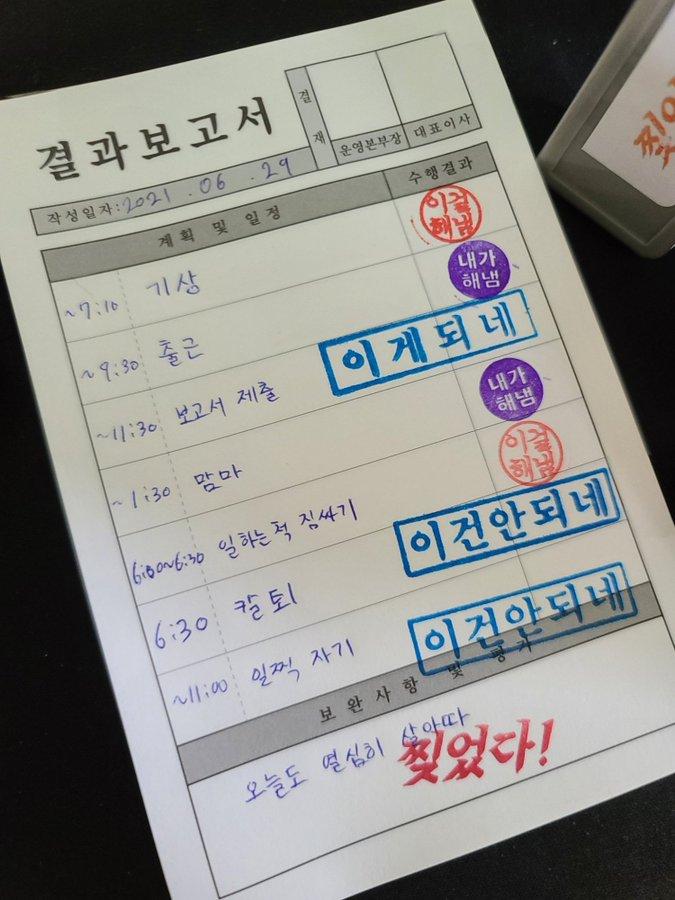 결과보고서
결재
운영본부장 대표이사
작성일자: 2021 . 06 . 29
계획 및 일정 수행결과
~7:10 기상 이걸해냄
~9:30 출근 내가해냄
~11:30 보고서 제출 이게되네
~1:30 맘마 내가해냄
6:00~6:30 일하는척 짐싸기 이걸해냄
6:30 칼퇴 이건안되네
~11:00 일찍 자기 이건안되네
보완사항 및 평가
오늘도 열심히 살아따
찢었다!